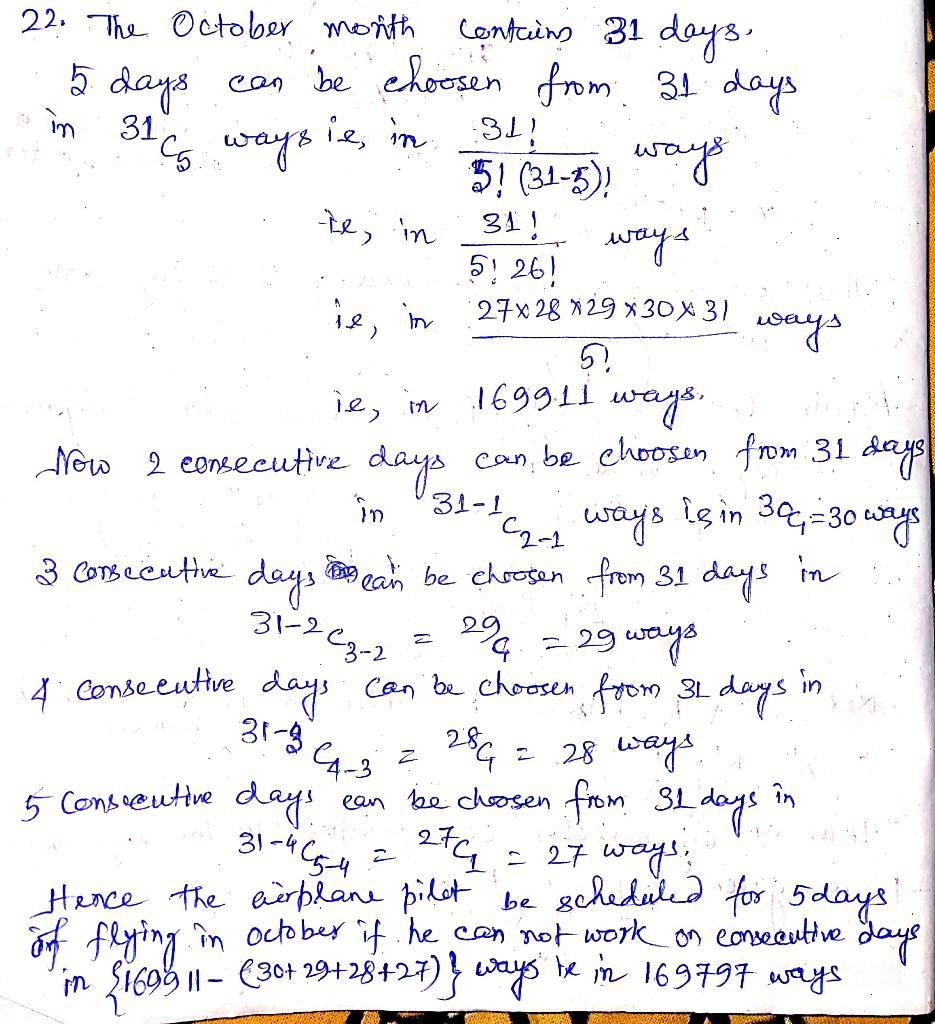 22. The October month contains 31 days.
5 days can be choosen from 31 days
in 31C5 ways ie, in 31! / 5! (31-5)! ways
ie, in 31! / 5! 26! ways
ie, in 27×28×29×30×31 / 5! ways
ie, in 169911 ways.
Now 2 consecutive days can be choosen from 31 days
in 31-1C2-1 ways ie in 30C1 = 30 ways
3 consecutive days can be choosen from 31 days in
31-2C3-2 = 29C1 = 29 ways
4 consecutive days can be choosen from 31 days in
31-3C4-3 = 28C1 = 28 ways
5 consecutive days can be choosen from 31 days in
31-4C5-4 = 27C1 = 27 ways.
Hence the airplane pilot be scheduled for 5 days
of flying in october if he can not work on consecutive days
in {169911 - (30+29+28+27)} ways ie in 169797 ways